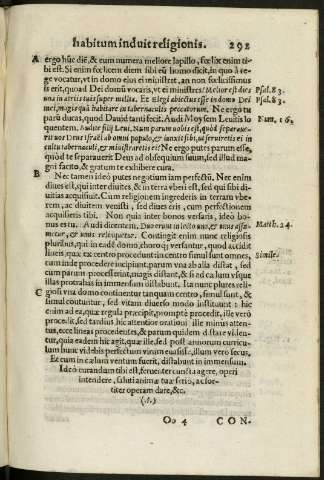 habitum induit religionis. 292
A ergo huc diē, & eum numera meliore lapillo, fœlix enim tibi est. Si enim fœlicem diem sibi eū homo dicit, in quo à rege vocatur, vt in domo eius ei ministret, an non fœlicissimus
is erit, quo ad Dei domū vocaris, vt ei ministres? Melior est dies Psal. 83.
una in atriis tuis super millia. Et Elegi abiectus esse in domo Dei Psal. 83.
mei, magis quā habitare in tabernaculis peccatorum. Ne ergo tu
parū ducas, quod Dauid tanti fecit. Audi Moysem Leuitis loquentem. Num. 16.
Audite filij Leui, Num parum vobis est, quòd separauit vos Deus Israël ab omni populo, & iunxit sibi, ut seruiretis ei in
cultu tabernaculi, & ministraretis ei? Ne ergo putes parum esse,
quòd te separauerit Deus ad obsequium suum, sed illud magni facito, & gratum te exhibere cura.
B Nec tamen ideò putes negotium iam perfectū. Nec enim
diues est, qui inter diuites, & in terra vberi est, sed qui sibi diuitias acquisiuit. Cum religionem ingrederis in terram vberem, ac diuitem venisti, sed diues eris, cum perfectionem
acquisieris tibi. Non quia inter bonos versaris, ideò bonus es tu. Audi dicentem. Duo erunt in lecto uno, & unus assumetur, Matth. 24.
& unus relinquetur. Contingit enim nunc religiosis
pluribus, qui in eadē domo, choroq; versantur, quod accidit
lineis, quæ ex centro producuntur: in centro simul sunt omnes, Simile.
cum inde procedere incipiunt, parum vna ab alia distat, sed
cum parum processerint, magis distant, & si ad cælum vsque
illas protrahas in immensum distabunt. Ita nunc plures religiosi
C vna domo continentur tanquam centro, simul sunt, &
simul coniuntur, sed vitam diuerso modo instituunt: hic
enim ad ea, quæ regula præcipit, promptè procedit, ille verò
procedit, sed tardius: hic attentior orationi ille minus attentus,
ecce lineas procedentes, & parum quidem distare videntur, quia eadem hic agit, quæ ille, sed post annorum curriculum hunc videbis perfectum virum euasisse, illum verò secus,
Et cum in cælum ventum fuerit, distabunt in immensum.
Ideò curandum tibi est, feruenter cuncta agere, operi
intendere, saluti animæ tuæ seriò, ac fortiter operam dare, &c.
(.?.)
Oo 4 CON-